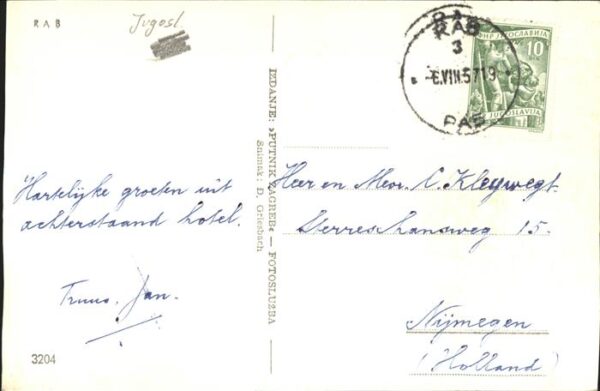 RAB
Jugosl.
Hartelijke groeten uit
achterstaand hotel.
Truus. Jan.
3204
IZDANJE: »PUTNIK ZAGREB« — FOTOSLUŽBA
Snimak: D. Griesbach
RAB
RAB
3
6.VIII.57 19
РАБ
ФНР ЈУГОСЛАВИЈА
10
JUGOSLAVIJA
Heer en Mevr. C. Kleywegt.
Sterreschansweg 15.
Nijmegen
(Holland)